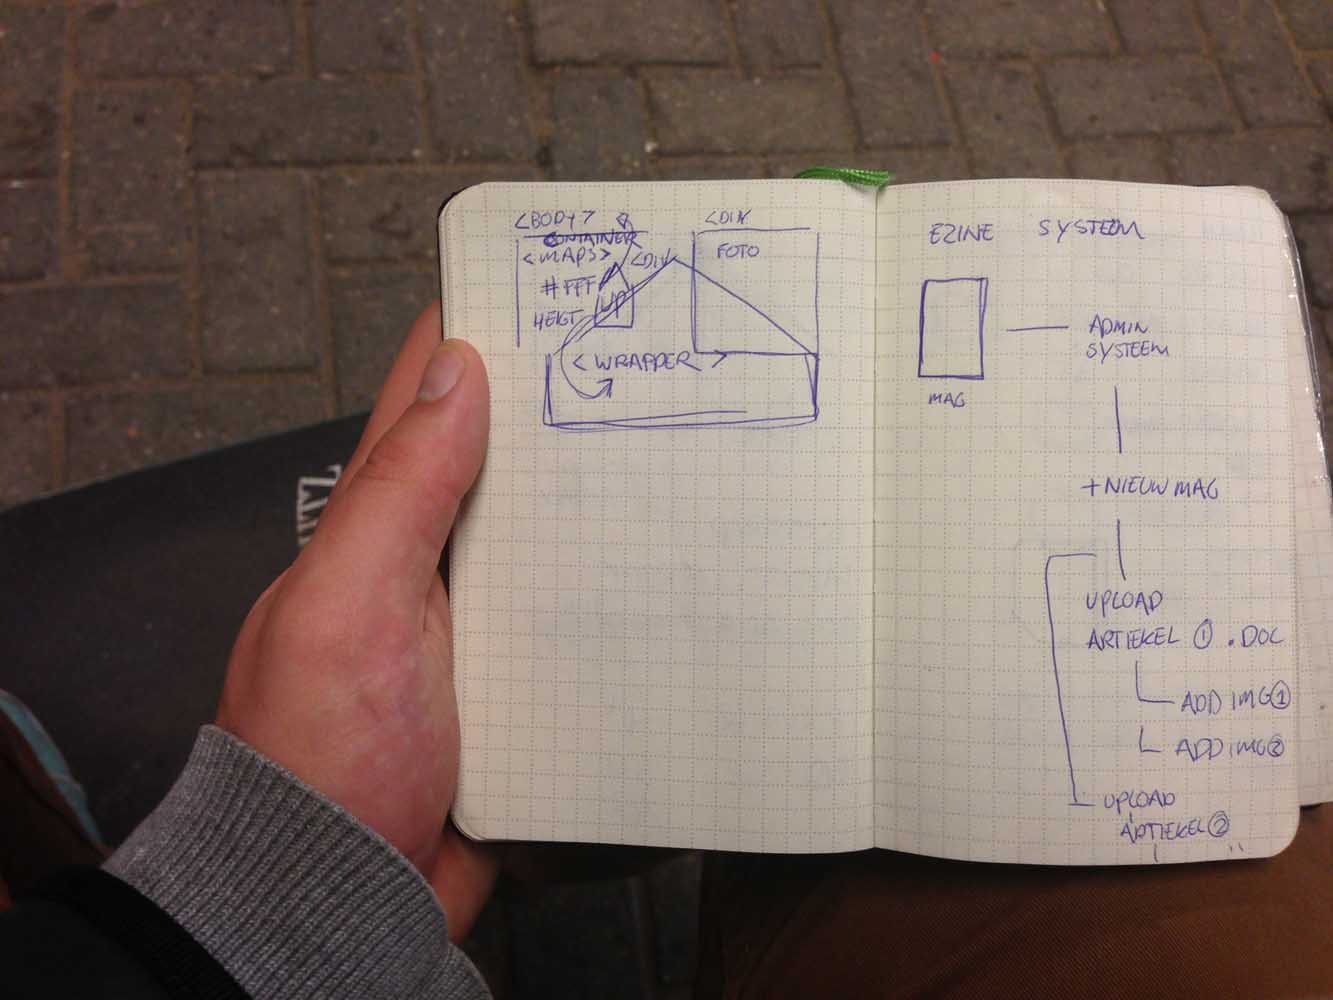 <BODY>
CONTAINER
<MAPS>
<DIV
#FFF
HEIGT
UP
<WRAPPER>
<DIV
FOTO
EZINE SYSTEEM
MAG
ADMIN
SYSTEEM
+NIEUW MAG
UPLOAD
ARTIEKEL 1 .DOC
ADD IMG 1
ADD IMG 2
UPLOAD
ARTIEKEL 2